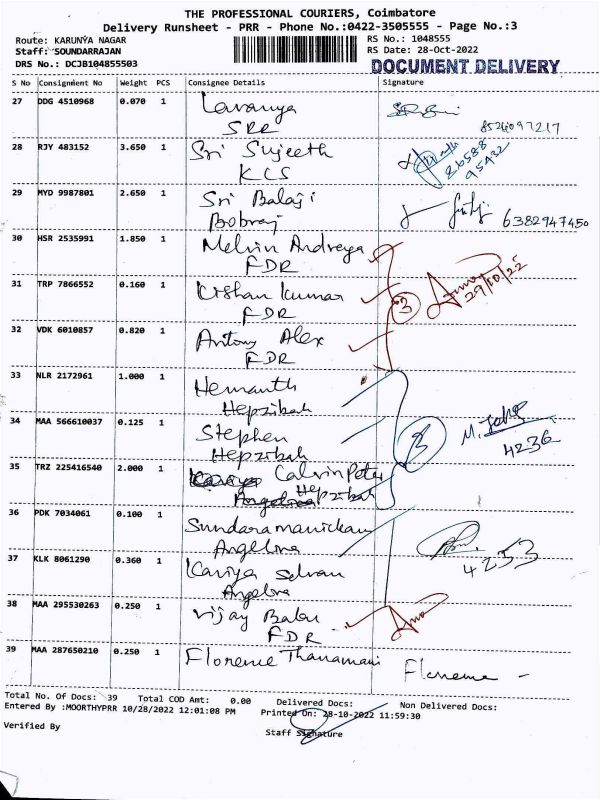 THE PROFESSIONAL COURIERS, Coimbatore
Delivery Runsheet - PRR - Phone No.:0422-3505555 - Page No.:3
Route: KARUNYA NAGAR
RS No.: 1048555
Staff: SOUNDARRAJAN
RS Date: 28-Oct-2022
DRS No.: DCJB104855503
DOCUMENT DELIVERY
S No Consignment No Weight PCS Consignee Details Signature
27 DDG 4510968 0.070 1 Lavanya
SRR 8524097217
28 RJY 483152 3.650 1 Sri Sujeeth 86588
KCS 95432
29 MYD 9987801 2.650 1 Sri Balaji
Bobraj 6382947450
30 HSR 2535991 1.850 1 Melvin Andreya
FDR
31 TRP 7866552 0.160 1 Kishan Kumar 3 29/10/22
FDR
32 VDK 6010857 0.820 1 Antony Alex
FDR
33 NLR 2172961 1.000 1 Hemanth
Hepzibah
34 MAA 566610037 0.125 1 Stephen 3 4236
Hepzibah
35 TRZ 225416540 2.000 1 Calvin Peter
Hepzibah
36 PDK 7034061 0.100 1 Sundaramanickam
Angelina 4253
37 KLK 8061290 0.360 1 Kaviya Selvan
Angelina
38 MAA 295530263 0.250 1 Vijay Babu
FDR
39 MAA 287650210 0.250 1 Florence Thanamani Florence
Total No. Of Docs: 39 Total COD Amt: 0.00 Delivered Docs: Non Delivered Docs:
Entered By :MOORTHYPRR 10/28/2022 12:01:08 PM Printed On: 28-10-2022 11:59:30
Verified By Staff Signature